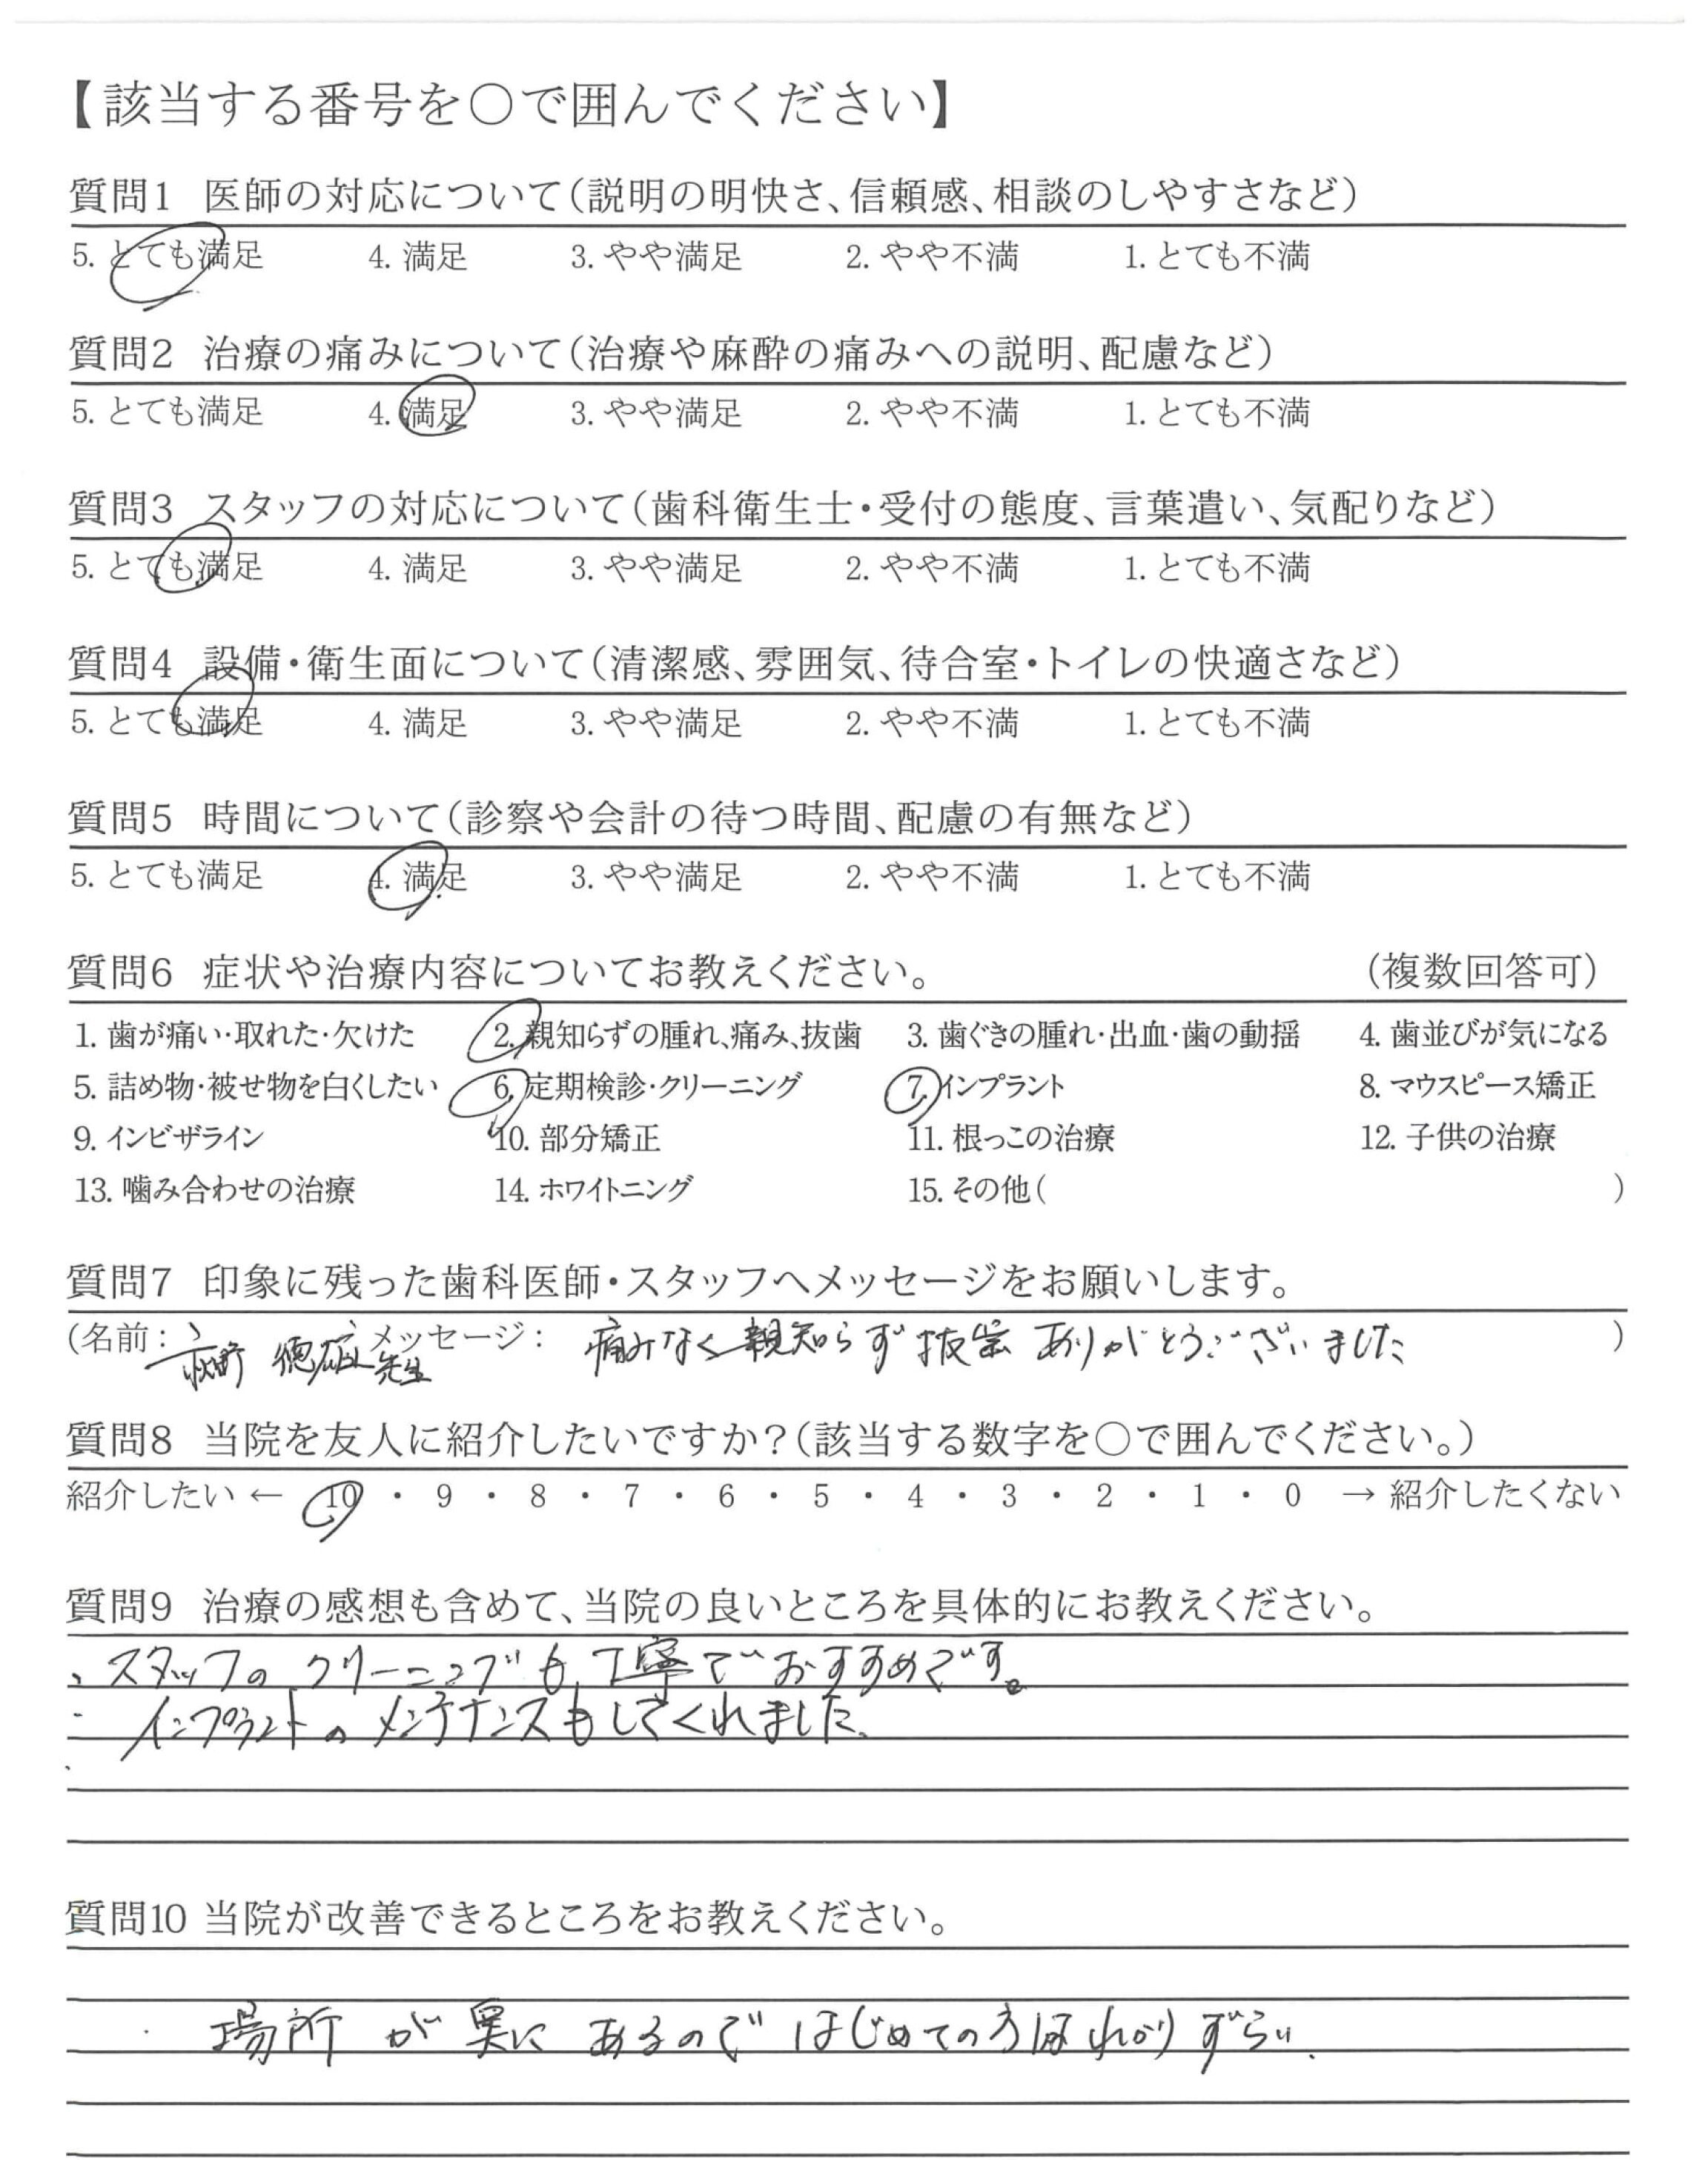 【該当する番号を○で囲んでください】
質問1 医師の対応について(説明の明快さ、信頼感、相談のしやすさなど)
5. とても満足 4. 満足 3. やや満足 2. やや不満 1. とても不満
質問2 治療の痛みについて(治療や麻酔の痛みへの説明、配慮など)
5. とても満足 4. 満足 3. やや満足 2. やや不満 1. とても不満
質問3 スタッフの対応について(歯科衛生士・受付の態度、言葉遣い、気配りなど)
5. とても満足 4. 満足 3. やや満足 2. やや不満 1. とても不満
質問4 設備・衛生面について(清潔感、雰囲気、待合室・トイレの快適さなど)
5. とても満足 4. 満足 3. やや満足 2. やや不満 1. とても不満
質問5 時間について(診察や会計の待つ時間、配慮の有無など)
5. とても満足 4. 満足 3. やや満足 2. やや不満 1. とても不満
質問6 症状や治療内容についてお教えください。 (複数回答可)
1. 歯が痛い・取れた・欠けた 2. 親知らずの腫れ、痛み、抜歯 3. 歯ぐきの腫れ・出血・歯の動揺 4. 歯並びが気になる
5. 詰め物・被せ物を白くしたい 6. 定期検診・クリーニング 7. インプラント 8. マウスピース矯正
9. インビザライン 10. 部分矯正 11. 根っこの治療 12. 子供の治療
13. 噛み合わせの治療 14. ホワイトニング 15. その他( )
質問7 印象に残った歯科医師・スタッフへメッセージをお願いします。
(名前: 先生 メッセージ: 痛みなく親知らず抜歯ありがとうございました )
質問8 当院を友人に紹介したいですか?(該当する数字を○で囲んでください。)
紹介したい ← 10 ・ 9 ・ 8 ・ 7 ・ 6 ・ 5 ・ 4 ・ 3 ・ 2 ・ 1 ・ 0 → 紹介したくない
質問9 治療の感想も含めて、当院の良いところを具体的にお教えください。
・スタッフのクリーニングも丁寧でおすすめです。
・インプラントのメンテナンスもしてくれました。
質問10 当院が改善できるところをお教えください。
・場所が奥にあるのではじめての方はわかりずらい.